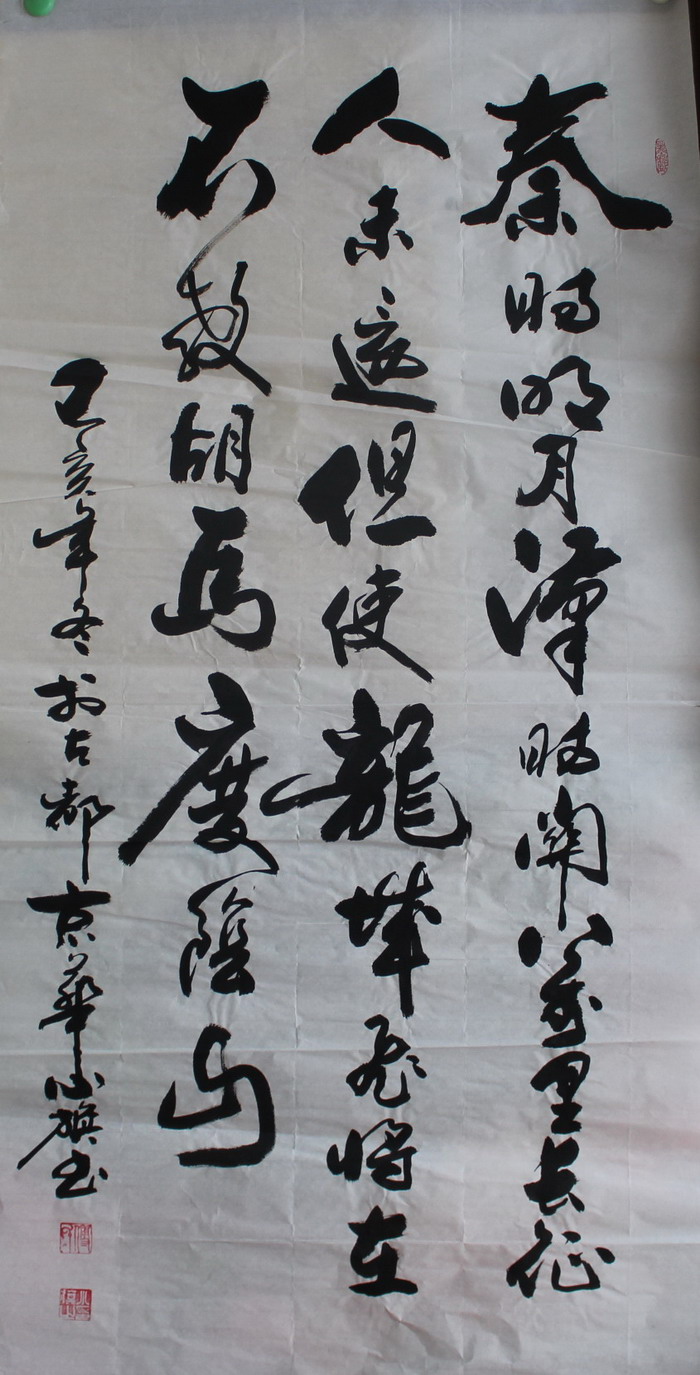 秦時明月漢時關萬里長征
人未還但使龍城飛將在
不教胡馬度陰山
己亥年冬於古都京華旗书